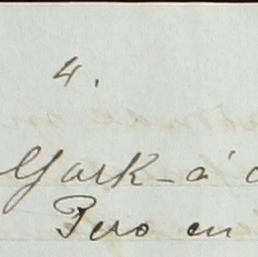 4.
York - á
Pero en